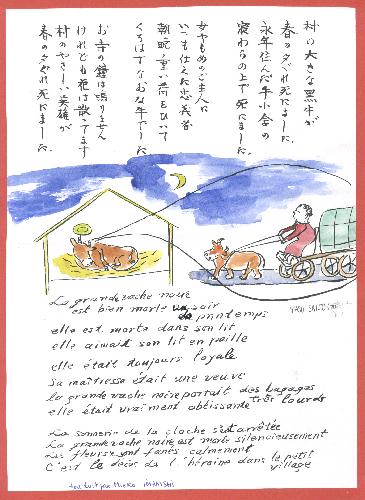 村の大きな黒牛が
春の夕ぐれ死にました
永年住んだ牛小舎の
寝わらの上で死にました
女やもめのご主人に
いつも仕えた忠義者
朝晩重い荷をひいて
くろはすなおな牛でした
お寺の鐘は鳴りません
けれども花は散ってます
村のやさしい英雄が
春の夕ぐれ死にました
YASO SAIJO
La grande vache noire
est bien morte un soir
de printemps
elle est morte dans son lit
elle aimait son lit en paille
elle était toujours loyale
Sa maîtresse était une veuve
la grande vache noire portait des bagages
très lourds
elle était vraiment obéissante
La sonnerie de la cloche s'est arrêtée
La grande vache noire est morte silencieusement
Les fleurs sont fanés calmement
C'est le décès de l'héroïne dans le petit
village
traduit par Mieko